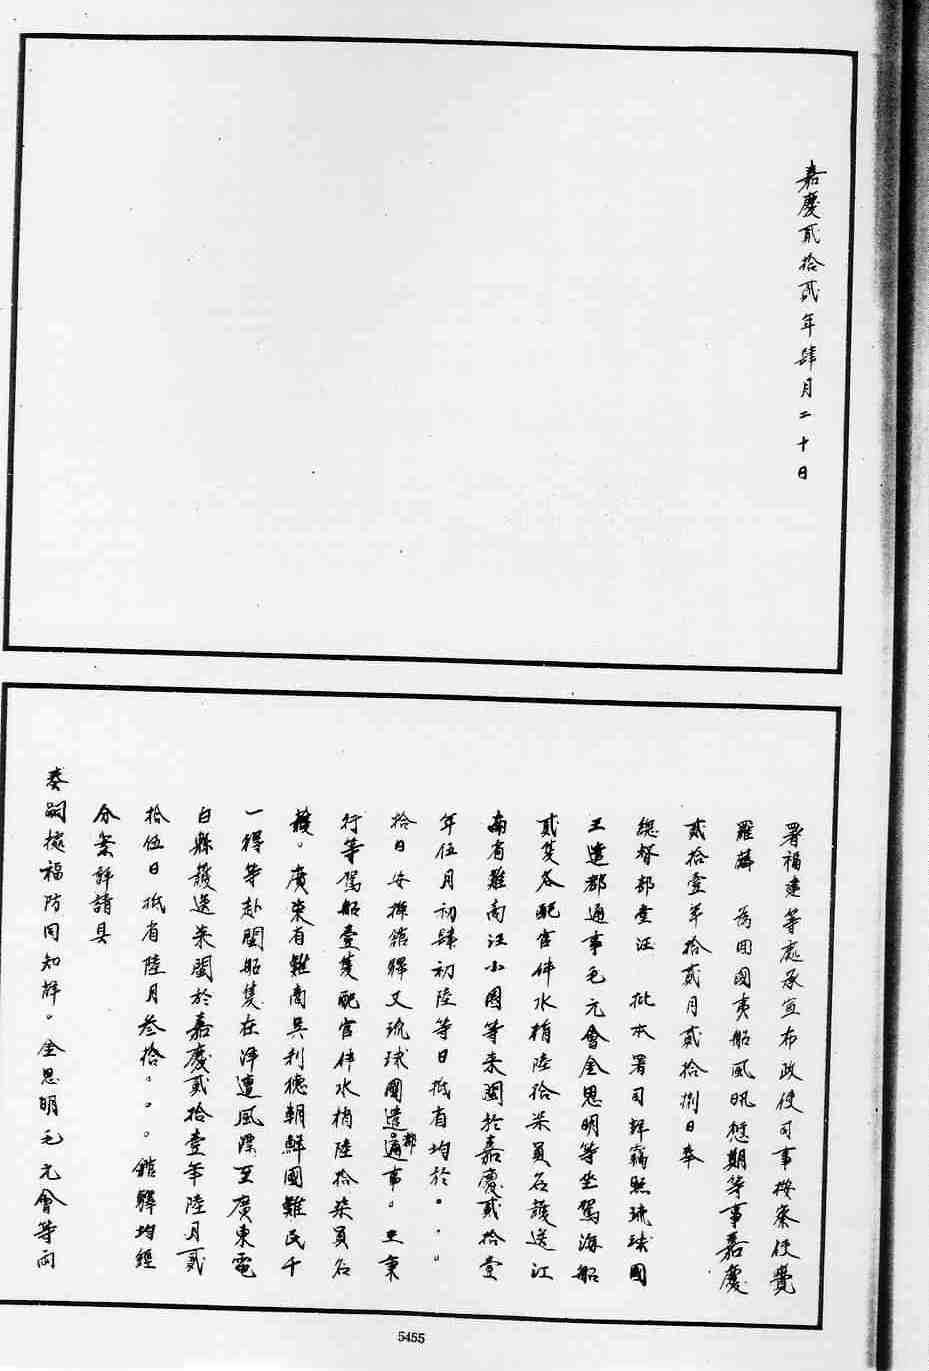 嘉慶貳拾貳年肆月二十日
署福建等處承宣布政使司事按察使覺
羅麟 為回國夷船風帆愆期等事嘉慶
貳拾壹年拾貳月貳拾捌日奉
總督部堂汪 批本署司詳竊照琉球國
王遣都通事毛元會金思明等坐駕海船
貳隻各配官伴水梢陸拾柒員名護送江
南省難商汪小園等來閩於嘉慶貳拾壹
年伍月初肆初陸等日抵省均於。。。
拾日安插館驛又琉球國遣都通事。王秉
行等駕船壹隻配官伴水梢陸拾柒員名
護。廣東有難商吳利德朝鮮國難民千
一得等赴閩船隻在洋遭風漂至廣東電
白縣護送來閩於嘉慶貳拾壹年陸月貳
拾伍日抵省陸月叁拾。。。館驛均經
分案詳請具
奏嗣據福防同知詳。金思明毛元會等兩
5455